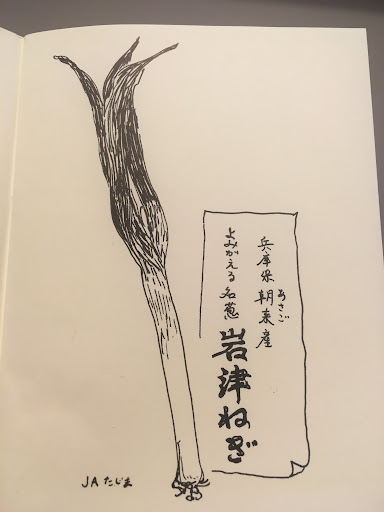 兵庫県朝来産
あさご
よみがえる名葱
岩津ねぎ
JAたじま